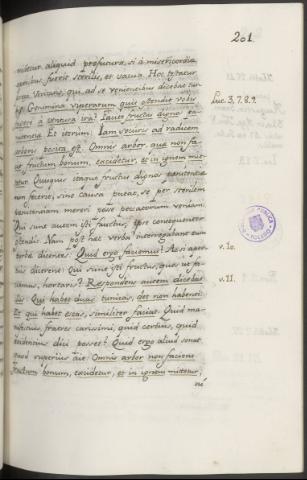 201
mittetur aliquid profutura, si à misericordia
operibus fuerit sterilis, et vacua. Hoc testatur
Veritatis, qui ad se venientibus dicebat
Genimina viperarum quis ostendit vobis
fugere à ventura ira? Facite fructus dignos
nitentia. Et iterum: Iam securis ad radicem
arboris posita est. Omnis arbor, quæ non fa-
cit fructum bonum, excidetur, et in ignem mit-
tetur. Quisquis itaque fructus dignos pœnitentiæ
non fecerit, sine causa putat, se per sterilem
pœnitentiam mereri posse peccatorum veniam.
Qui sunt autem isti fructus, ipse consequenter
ostendit. Nam post hæc verba interrogabant eum
turbæ dicentes: Quid ergo faciemus? Ac si aper-
tius dicerent: Qui sunt isti fructus, quos ut fa-
ciamus, hortaris? Respondens autem dicebat
illis: Qui habet duas tunicas, det non habenti:
Et qui habet escas, similiter faciat. Quid ma-
nifestius, fratres carissimi, quid certius, quid
dici posset? Quid ergo aliud sonat
quod superius ait: Omnis arbor non faciens
fructum bonum, excidetur, et in ignem mittetur,
Luc. 3, 7. 8. 9.
v. 10.
v. 11.